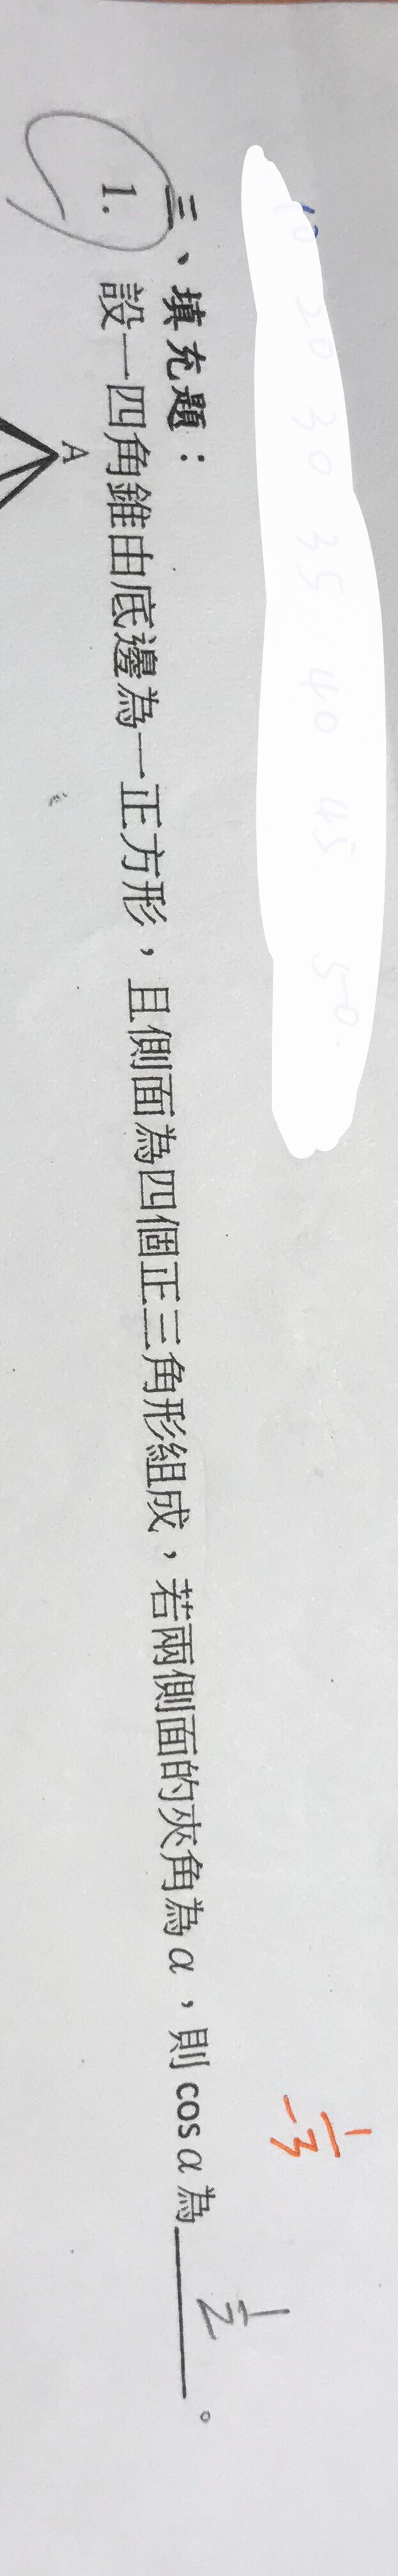 10 20 30 35 40 45 50
三、填充題：
1. 設一四角錐由底邊為一正方形，且側面為四個正三角形組成，若兩側面的夾角為α，則cosα為______。
1/2
1/-3
A